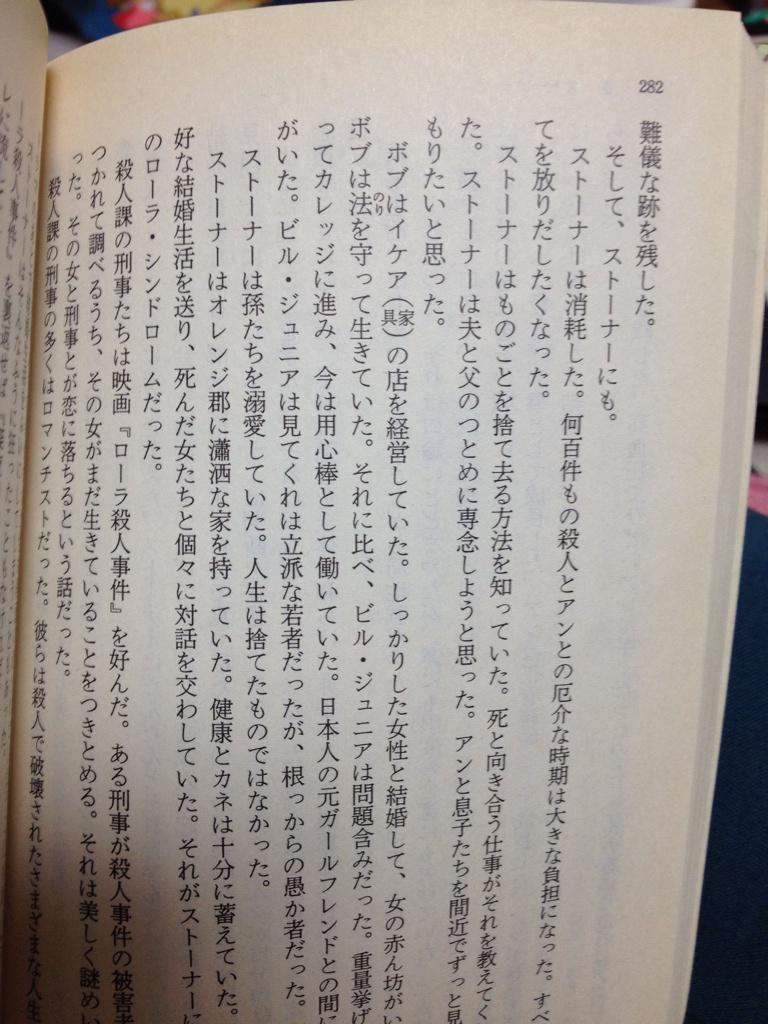 282
難儀な跡を残した。
そして、ストーナーにも。
ストーナーは消耗した。何百件もの殺人とアンとの厄介な時期は大きな負担になった。すべ
てを放りだしたくなった。
ストーナーはものごとを捨て去る方法を知っていた。死と向き合う仕事がそれを教えてく
た。ストーナーは夫と父のつとめに専念しようと思った。アンと息子たちを間近でずっと見
もりたいと思った。
ボブはイケア（家具）の店を経営していた。しっかりした女性と結婚して、女の赤ん坊がい
ボブは法を守って生きていた。それに比べ、ビル・ジュニアは問題含みだった。重量挙げ
ってカレッジに進み、今は用心棒として働いていた。日本人の元ガールフレンドとの間に
がいた。ビル・ジュニアは見てくれは立派な若者だったが、根っからの愚か者だった。
ストーナーは孫たちを溺愛していた。人生は捨てたものではなかった。
ストーナーはオレンジ郡に瀟洒な家を持っていた。健康とカネは十分に蓄えていた。
好な結婚生活を送り、死んだ女たちと個々に対話を交わしていた。それがストーナーに
のローラ・シンドロームだった。
殺人課の刑事たちは映画『ローラ殺人事件』を好んだ。ある刑事が殺人事件の被害者
つかれて調べるうち、その女がまだ生きていることをつきとめる。それは美しく謎めい
った。その女と刑事とが恋に落ちるという話だった。
殺人課の刑事の多くはロマンチストだった。彼らは殺人で破壊されたさまざまな人生